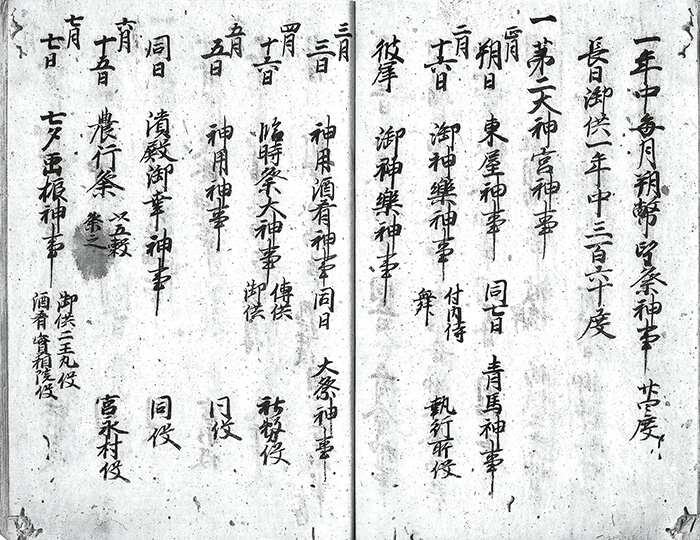 一年中毎月朔幣望祭神事 廿四度
長日御供一年中三百六十度
一 第二大神宮神事
正月
朔日 東屋神事 同七日 青馬神事
二月
十六日 御神樂神事 付内侍
舞 執行所役
彼岸 御神樂神事
三月
三日 神用酒肴神事 同日 大祭神事
四月
十六日 臨時祭大神事 傳供
御供 社務役
五月
五日 神用神事 同役
同日 濱殿御幸神事 同役
六月
十五日 農行祭 以五穀
祭之 宮永村役
七月
七日 七夕 神事 御供二王丸役
酒肴實相院役